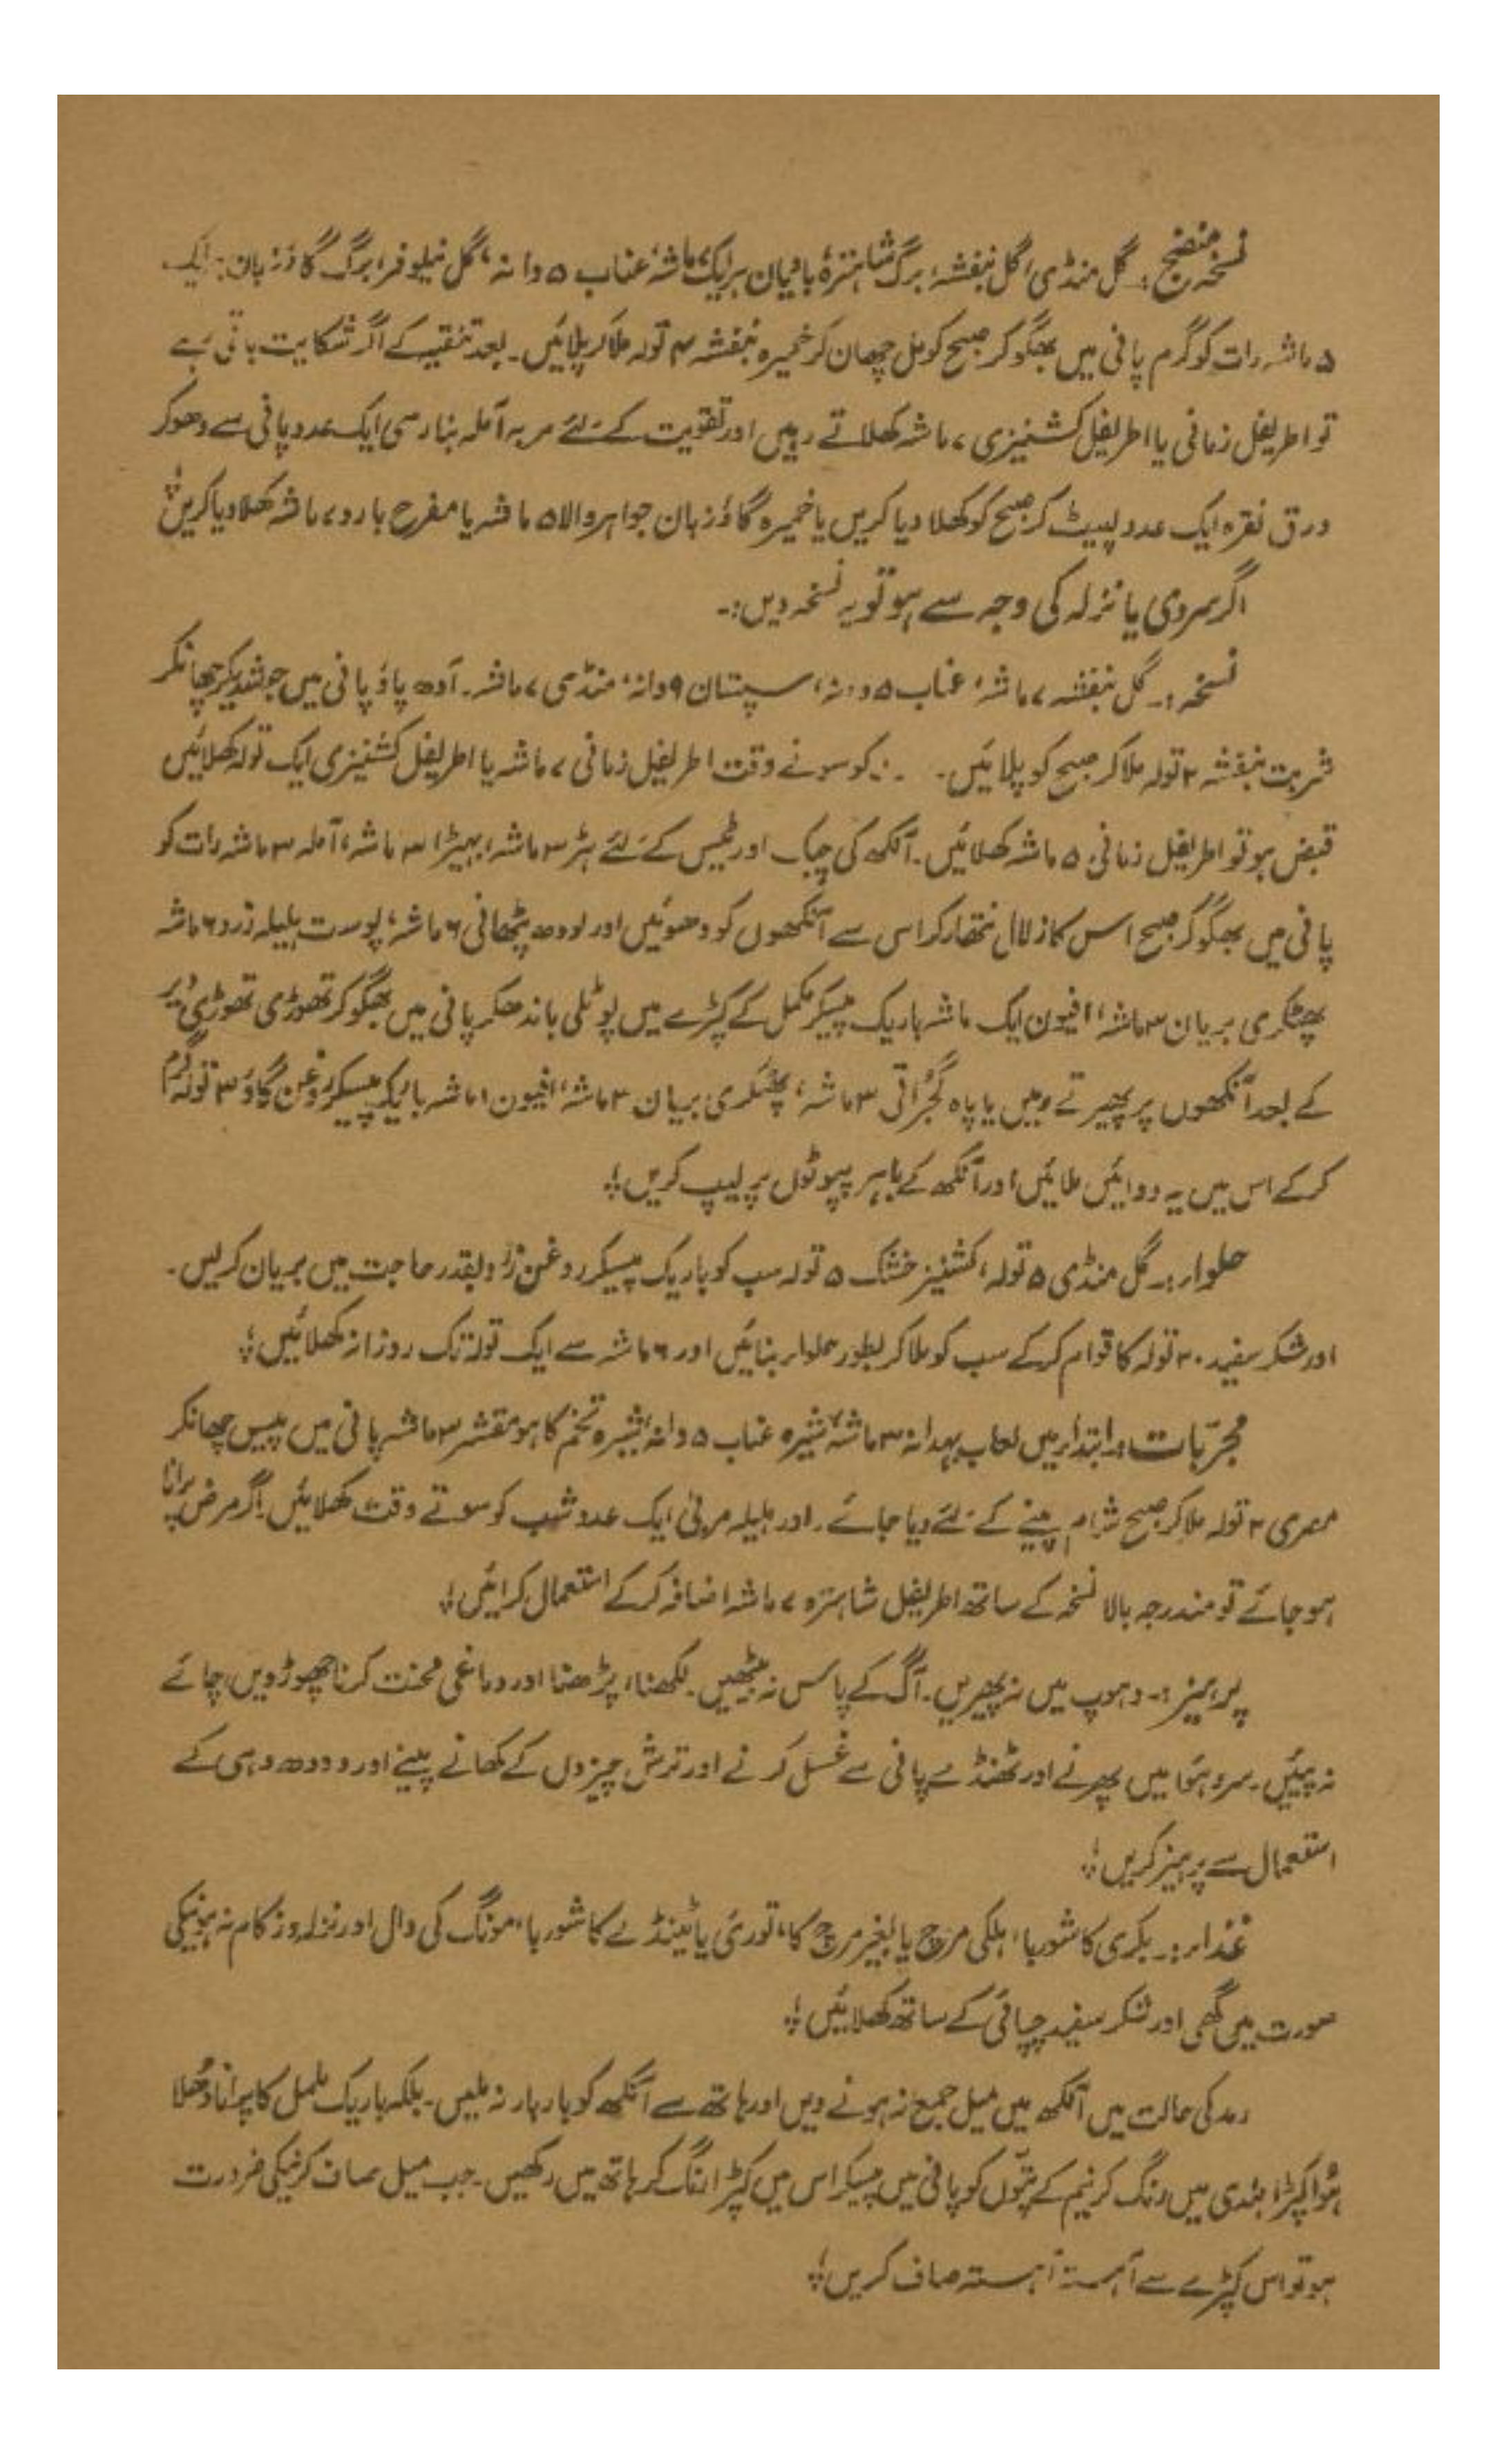 نسخہ منضج :۔ گل منڈی، گل بنفشہ، برگ شاہترہ، بادیان ہر ایک ۷ ماشہ، عناب ۵ دانہ، گل نیلوفر، برگ گاؤزبان: ایک
۵ ماشہ رات کو گرم پانی میں بھگو کر صبح کو مل چھان کر خمیرہ بنفشہ ۴ تولہ ملا کر پلائیں۔ بعد تنقیہ کے اگر شکایت باقی رہے
تو اطریفل زمانی یا اطریفل کشنیزی ۷ ماشہ کھلاتے رہیں اور تقویت کے لئے مربہ آملہ بنارسی ایک عدد پانی سے دھو کر
ورق نقرہ ایک عدد لپیٹ کر صبح کو کھلا دیا کریں یا خمیرہ گاؤزبان جواہر والا ۵ ماشہ یا مفرح بارد ۷ ماشہ کھلا دیا کریں؛
اگر سردی یا نزلہ کی وجہ سے ہو تو یہ نسخہ دیں:۔
نسخہ:۔ گل بنفشہ ۷ ماشہ، عناب ۵ دانہ، سپستان ۹ دانہ، منڈی ۷ ماشہ۔ آدھ پاؤ پانی میں جوشدیکر چھانکر
شربت بنفشہ ۲ تولہ ملا کر صبح کو پلائیں۔ کو سونے وقت اطریفل زمانی ۷ ماشہ یا اطریفل کشنیزی ایک تولہ کھلائیں
قبض ہو تو اطریفل زمانی ۵ ماشہ کھلائیں۔ آنکھ کی چپک اور ٹیس کے لئے ہڑ ۳ ماشہ، بہیڑا ۳ ماشہ، آملہ ۳ ماشہ رات کو
پانی میں بھگو کر صبح اس کا زلال نتھار کر اس سے آنکھوں کو دھوئیں اور لودھ پٹھانی ۶ ماشہ، پوست ہلیلہ زرد ۶ ماشہ
پھٹکری بریان ۳ ماشہ، افیون ایک ماشہ باریک پیسکر ململ کے کپڑے میں پوٹلی باندھکر پانی میں بھگو کر تھوڑی تھوڑی دیر
کے بعد آنکھوں پر پھیرتے رہیں یا پاہ گجراتی ۳ ماشہ، پھٹکری بریان ۳ ماشہ، افیون ۱ ماشہ باریک پیسکر روغن گاؤ ۳ تولہ گرم
کر کے اس میں یہ دوائیں ملائیں اور آنکھ کے باہر پپوٹوں پر لیپ کریں؛
حلوار:۔ گل منڈی ۵ تولہ، کشنیز خشک ۵ تولہ سب کو باریک پیسکر روغن زرد بقدر حاجت میں بریان کر لیں۔
اور شکر سفید ۲۰ تولہ کا قوام کر کے سب کو ملا کر بطور حلوار بنائیں اور ۶ ماشہ سے ایک تولہ تک روزانہ کھلائیں؛
مجرّبات:۔ ابتدار میں لعاب بہدانہ ۳ ماشہ، شیرہ عناب ۵ دانہ، شیرہ تخم کاہو مقشر ۳ ماشہ پانی میں پیس چھانکر
مصری ۲ تولہ ملا کر صبح شام پینے کے لئے دیا جائے۔ اور ہلیلہ مربیٰ ایک عدد شب کو سوتے وقت کھلائیں۔ اگر مرض پرانا
ہو جائے تو مندرجہ بالا نسخہ کے ساتھ اطریفل شاہترہ ۷ ماشہ اضافہ کر کے استعمال کرائیں؛
پرہیز:۔ دہوپ میں نہ پھریں۔ آگ کے پاس نہ بیٹھیں۔ لکھنا، پڑھنا اور دماغی محنت کرنا چھوڑ دیں، چائے
نہ پئیں۔ سرد ہوا میں پھرنے اور ٹھنڈے پانی سے غسل کرنے اور ترش چیزوں کے کھانے پینے اور دودھ دہی کے
استعمال سے پرہیز کریں؛
غذار:۔ بکری کا شوربا، ہلکی مرچ یا بغیر مرچ کا، توری یا ٹینڈے کا شوربا، مونگ کی دال اور نزلہ و زکام نہ ہونیکی
صورت میں گھی اور شکر سفید چپاتی کے ساتھ کھلائیں؛
رمد کی حالت میں آنکھ میں میل جمع نہ ہونے دیں اور ہاتھ سے آنکھ کو بار بار نہ ملیں۔ بلکہ باریک ململ کا پرانا دُھلا
ہُوا کپڑا ہلدی میں رنگ کر نیم کے پتّوں کو پانی میں پیسکر اس میں کپڑا رنگ کر ہاتھ میں رکھیں۔ جب میل صاف کرنیکی ضرورت
ہو تو اس کپڑے سے آہستہ آہستہ صاف کریں؛